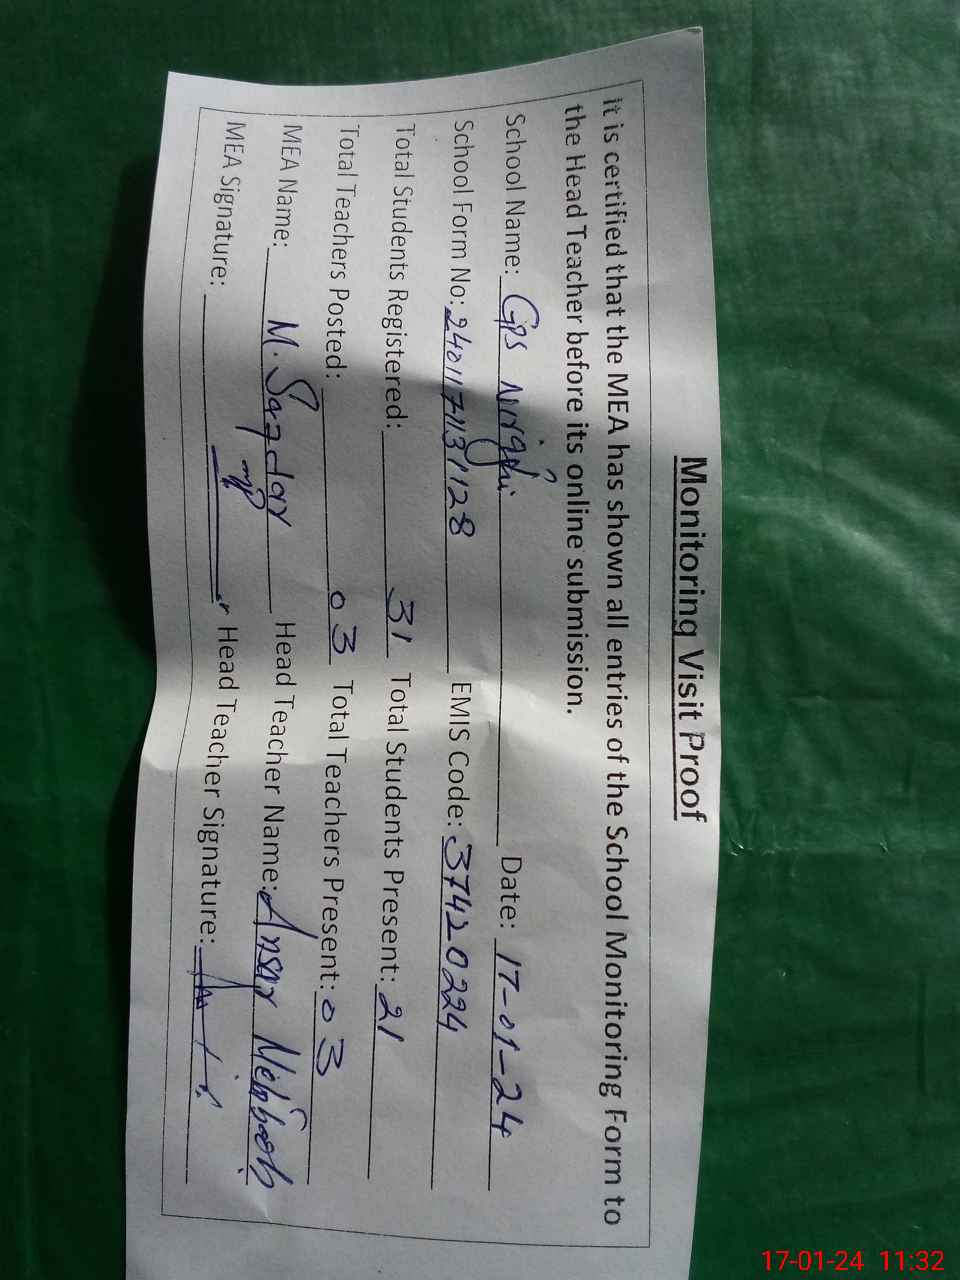 Monitoring Visit Proof
it is certified that the MEA has shown all entries of the School Monitoring Form to
the Head Teacher before its online submission.
School Name: GPS Date: 17-01-24
School Form No: EMIS Code: 37420224
Total Students Registered: 31 Total Students Present: 21
Total Teachers Posted: 03 Total Teachers Present: 03
MEA Name: M. Head Teacher Name: Ansar Mehboob
MEA Signature: Head Teacher Signature:
17-01-24 11:32